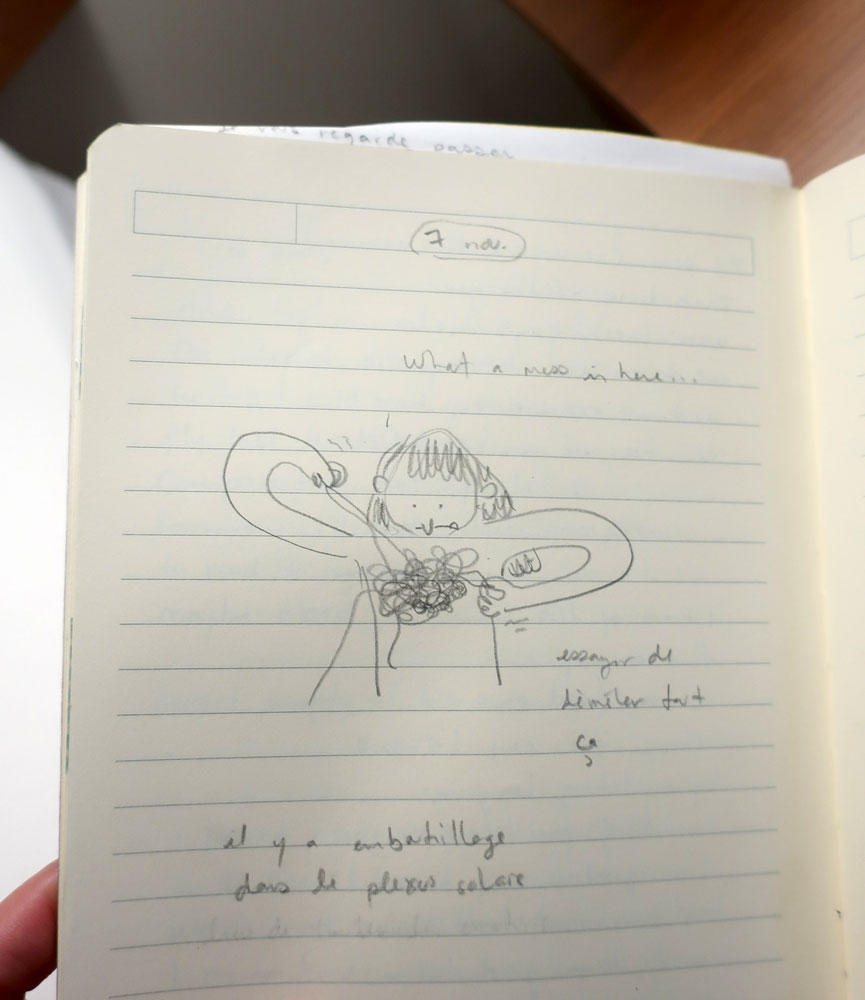 regarde passer
7 nov.
What a mess in here...
essayer de
démêler tout
ça
il y a embouteillage
dans le plexus solaire